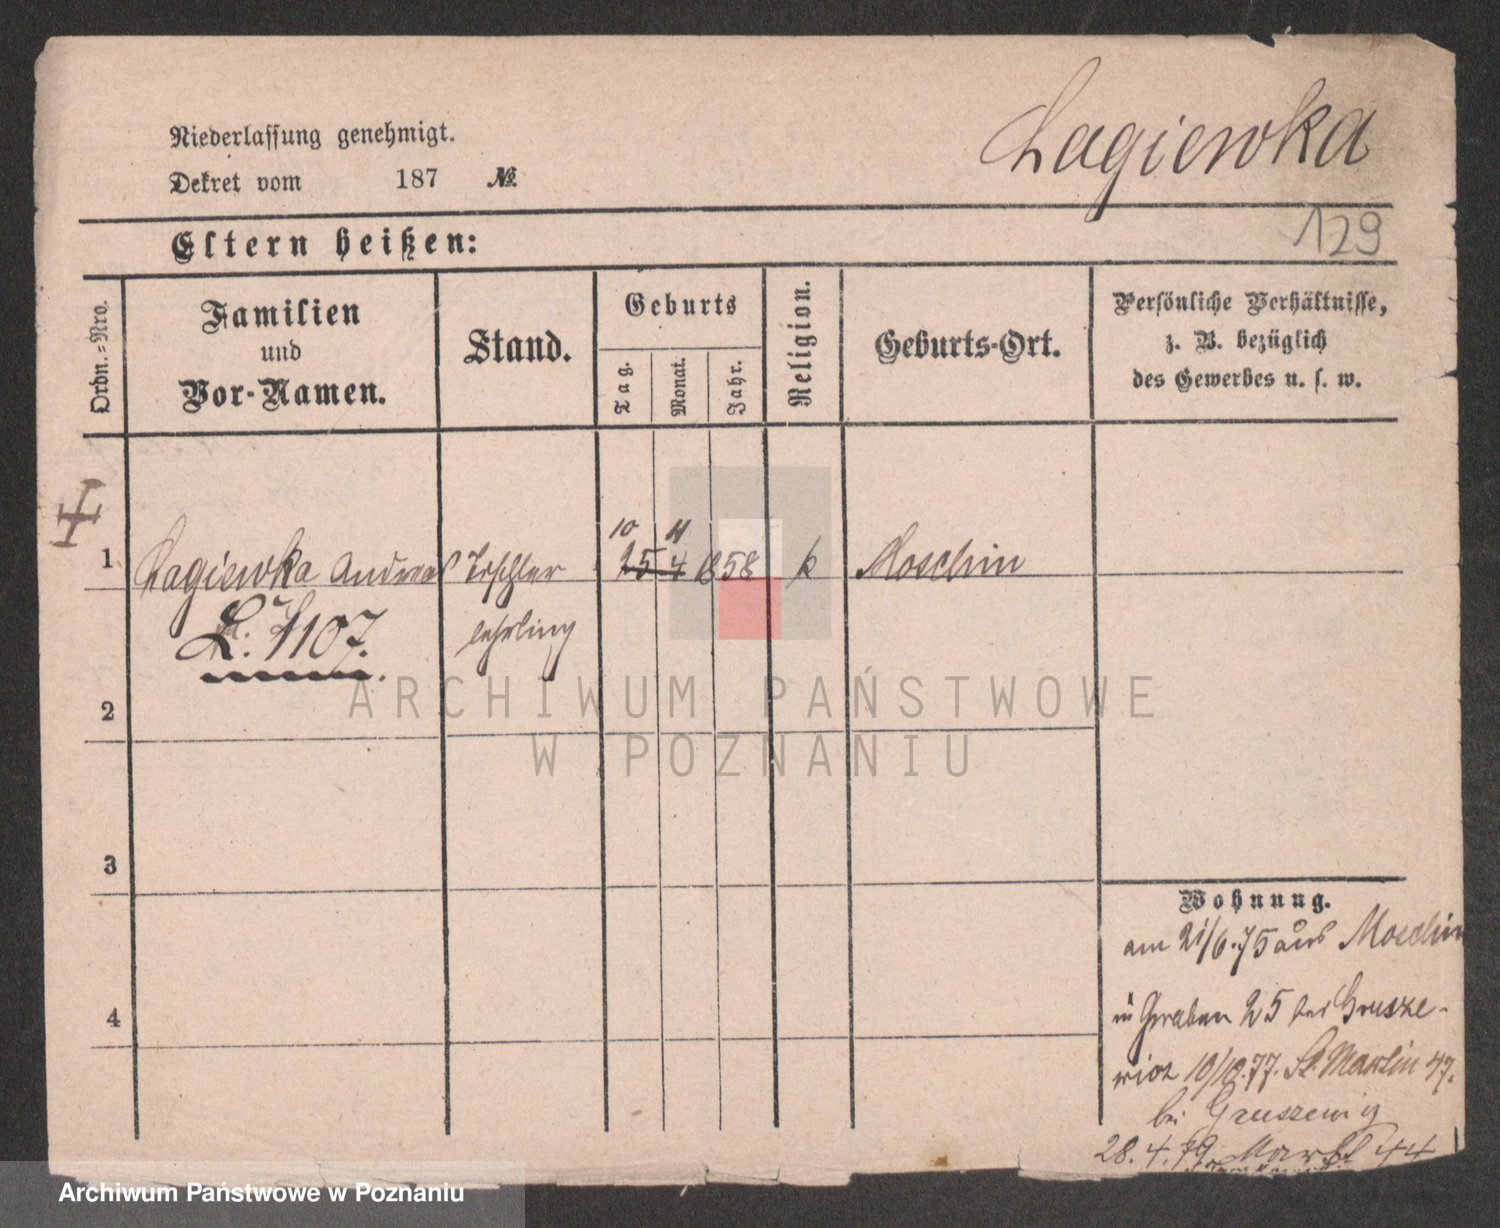 Łagiewka
Niederlassung genehmigt.
Dekret vom 187 №
129
Eltern heißen:
Ordn.-Nro.
Familien
und
Vor-Namen.
Stand.
Geburts
Tag.
Monat.
Jahr.
Religion.
Geburts-Ort.
Persönliche Verhältnisse,
z. B. bezüglich
des Gewerbes u. s. w.
10 11
1 Łagiewka Andreas Tischler 25 4 1858 k Moschin
lehrling
L. 1107.
2
3
4
Wohnung.
am 21/6.75 aus Moschin
in Graben 25 bei Grusze-
wicz 10/10.77. St. Martin 47.
bei Gruszewicz
28.4.79. Markt 44
ARCHIWUM PAŃSTWOWE
W POZNANIU
Archiwum Państwowe w Poznaniu